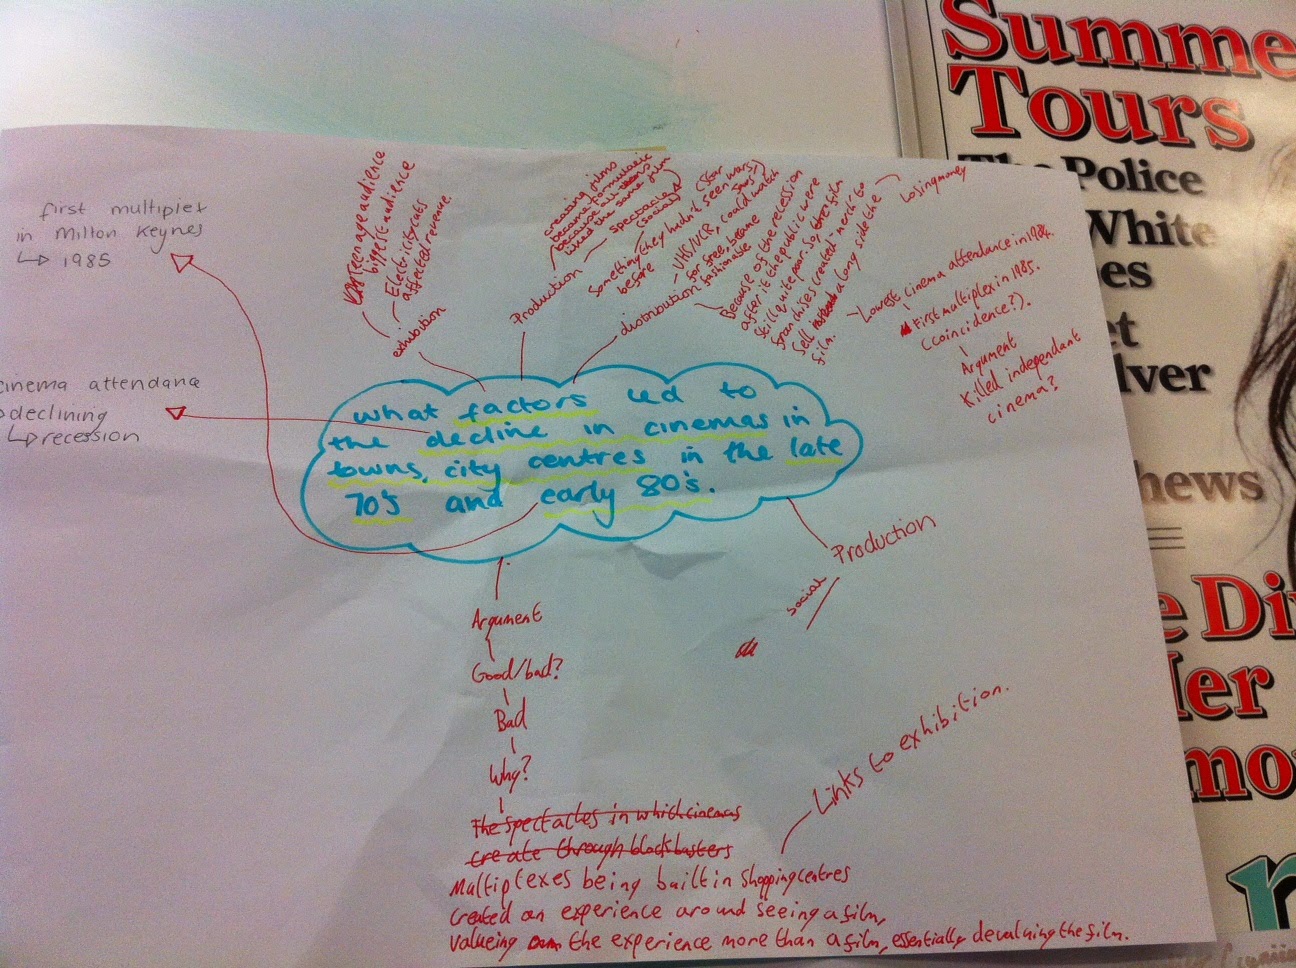 first multiplex
in Milton Keynes
↳ 1985
cinema attendance
declining
↳ recession
teenage audience
biggest audience
Electricity cuts
affected revenue.
exhibition
creating films
became formulaic
because all teens
liked the same film
Spectacle
(social)
Something they hadn't seen (Star
before wars,)
Jaws
Production
-VHS/VCR, could watch
for free, became
fashionable
distribution
Because of the recession
after it the public were
still quite poor. So, the film
franchises created "merch" to
sell along side the
film.
Losing money
Lowest cinema attendance in 1984.
First multiplex in 1985.
(coincidence?).
Argument
Killed independant
cinema?
what factors led to
the decline in cinemas in
towns, city centres in the late
70's and early 80's.
Production
social
Argument
Good/bad?
Bad
Why?
The spectacles in which cinemas
create through blockbusters
Multiplexes being built in shopping centres
created an experience around seeing a film,
valueing the experience more than a film, essentially devaluing the film.
Links to exhibition.
Summe
Tours
The Police
White
es
et
lver
hews
e Di
Her
mo